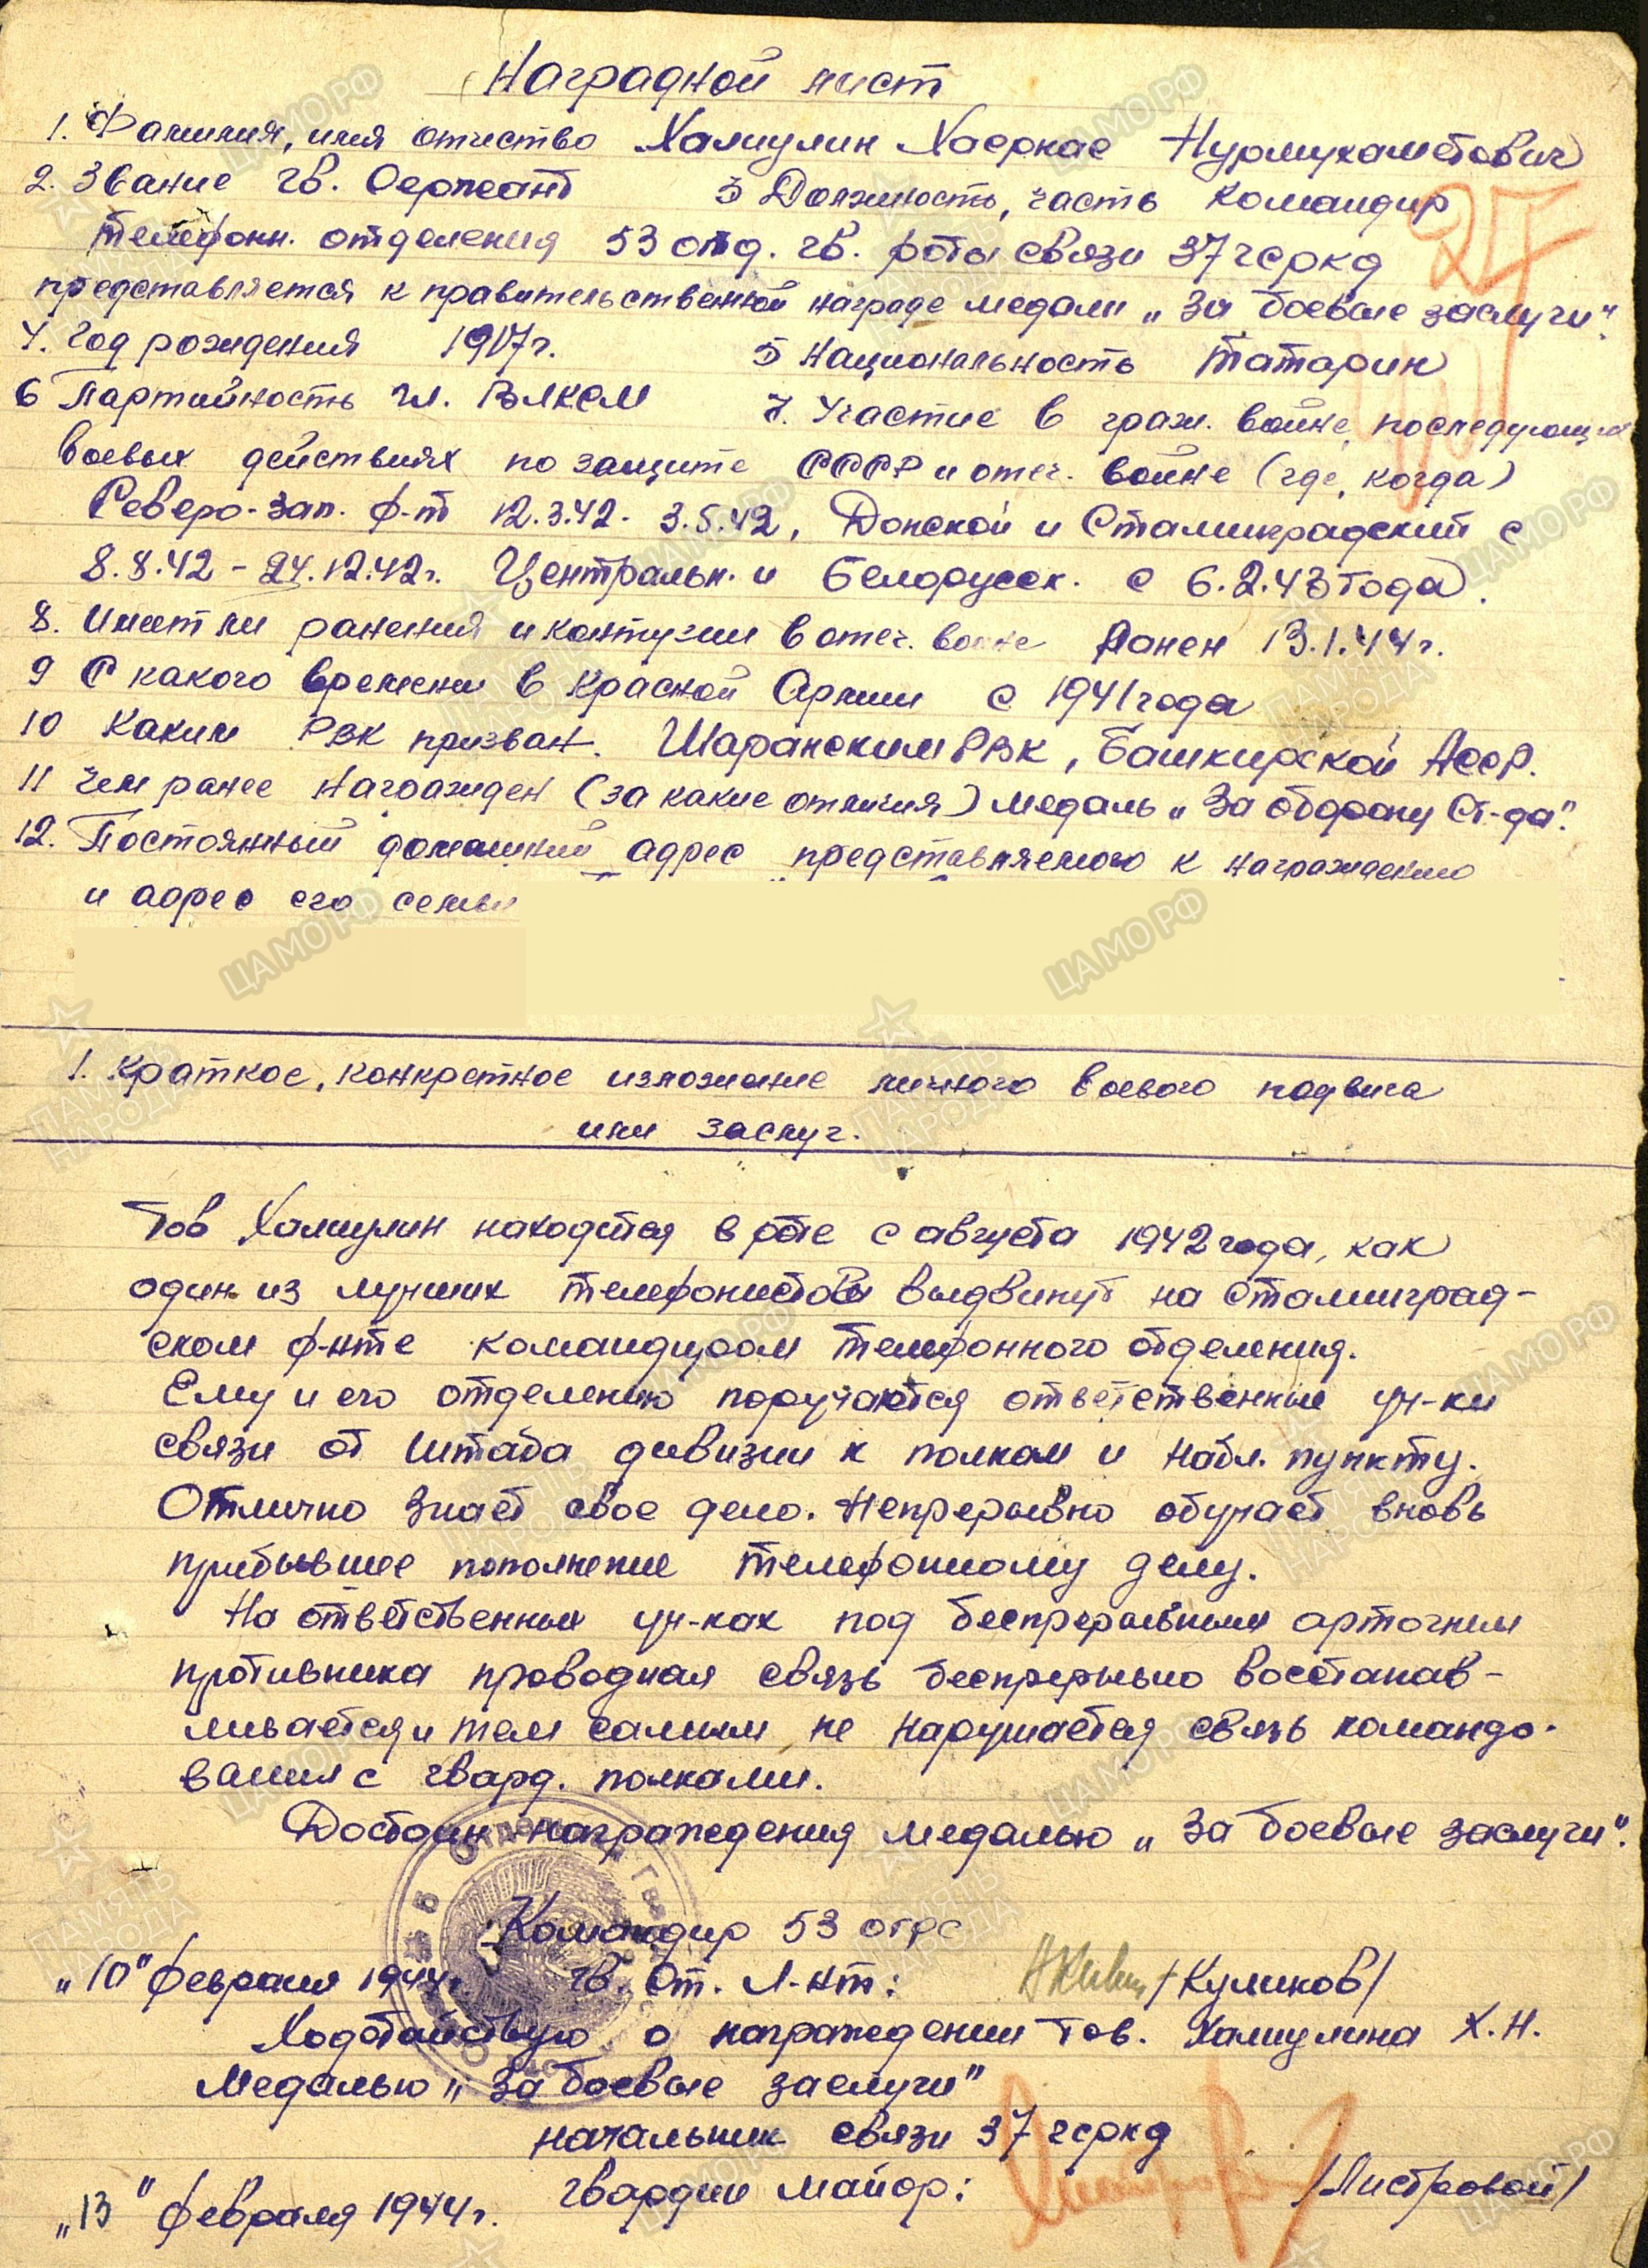 Наградной лист
1. Фамилия, имя отчество Хамиулин Хаернас Нурмухаметович
2. Звание гв. Сержант 3 Должность, часть командир
телефонн. отделения 53 отд. гв. роты связи 37 гсркд
представляется к правительственной награде медали „За боевые заслуги".
4. Год рождения 1917г. 5 Национальность татарин
6 Партийность чл. ВЛКСМ 7. Участие в граж. войне, последующих
боевых действиях по защите СССР и отеч. войне (где, когда)
Северо-зап. ф-т 12.3.42- 3.5.42, Донской и Сталинградский с
8.8.42 - 24.12.42г. Центральн. и Белорусск. с 6.2.43 года.
8. Имеет ли ранения и контузии в отеч. войне Ранен 13.1.44г.
9 С какого времени в Красной Армии с 1941 года
10 Каким РВК призван. Шаранским РВК, Башкирской АССР.
11 Чем ранее награжден (за какие отличия) медаль „За оборону Ст-да".
12. Постоянный домашний адрес представляемого к награждению
и адрес его семьи
1. Краткое, конкретное изложение личного боевого подвига
или заслуг.
Тов Хамиулин находится в роте с августа 1942 года, как
один из лучших телефонистов выдвинут на Сталинград-
ском ф-нте командиром телефонного отделения.
Ему и его отделению поручаются ответственные уч-ки
связи от штаба дивизии к полкам и набл. пункту.
Отлично знает свое дело. Непрерывно обучает вновь
прибывшее пополнение телефонному делу.
На ответственных уч-ках под беспрерывным артогнем
противника проводная связь беспрерывно восстанав-
ливается и тем самым не нарушается связь командо-
вания с гвард. полками.
Достоин награждения медалью „За боевые заслуги".
Командир 53 огрс
„10" февраля 1944г. гв. Ст. Л-нт: /Куликов/
Ходотайствую о награждении тов. Хамиулина Х.Н.
Медалью „За боевые заслуги"
начальник связи 37 гсркд
гвардии майор: /Листровой/
„13" февраля 1944г.